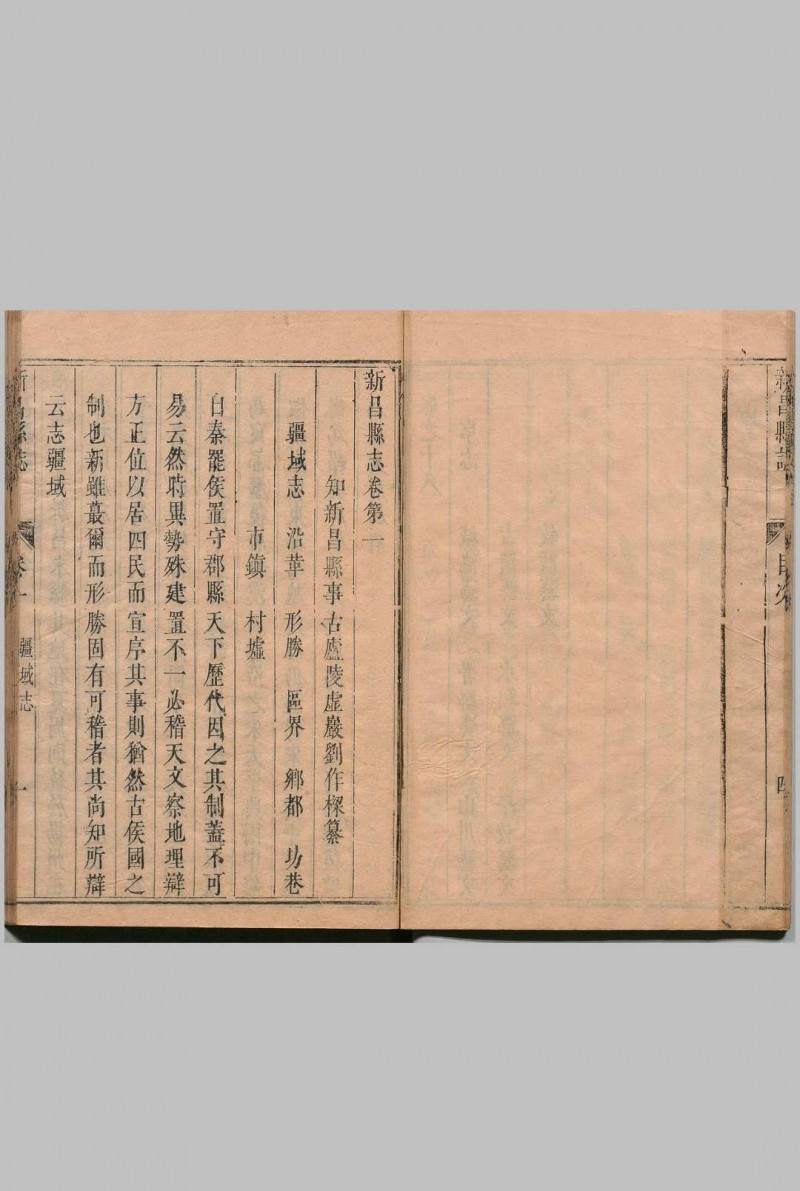 新昌縣志
目次
四
新昌縣志卷第一
知新昌縣事古廬陵虛巖劉作樑纂
疆域志 沿革 形勝 區界 鄉都 坊巷
市鎮 村墟
自秦罷侯置守郡縣天下歷代因之其制蓋不可
易云然時異勢殊建置不一必稽天文察地理辯
方正位以居四民而宣序其事則猶然古侯國之
制也新雖蕞爾而形勝固有可稽者其尚知所辯
云志疆域
新昌縣志
卷一
疆域志
一